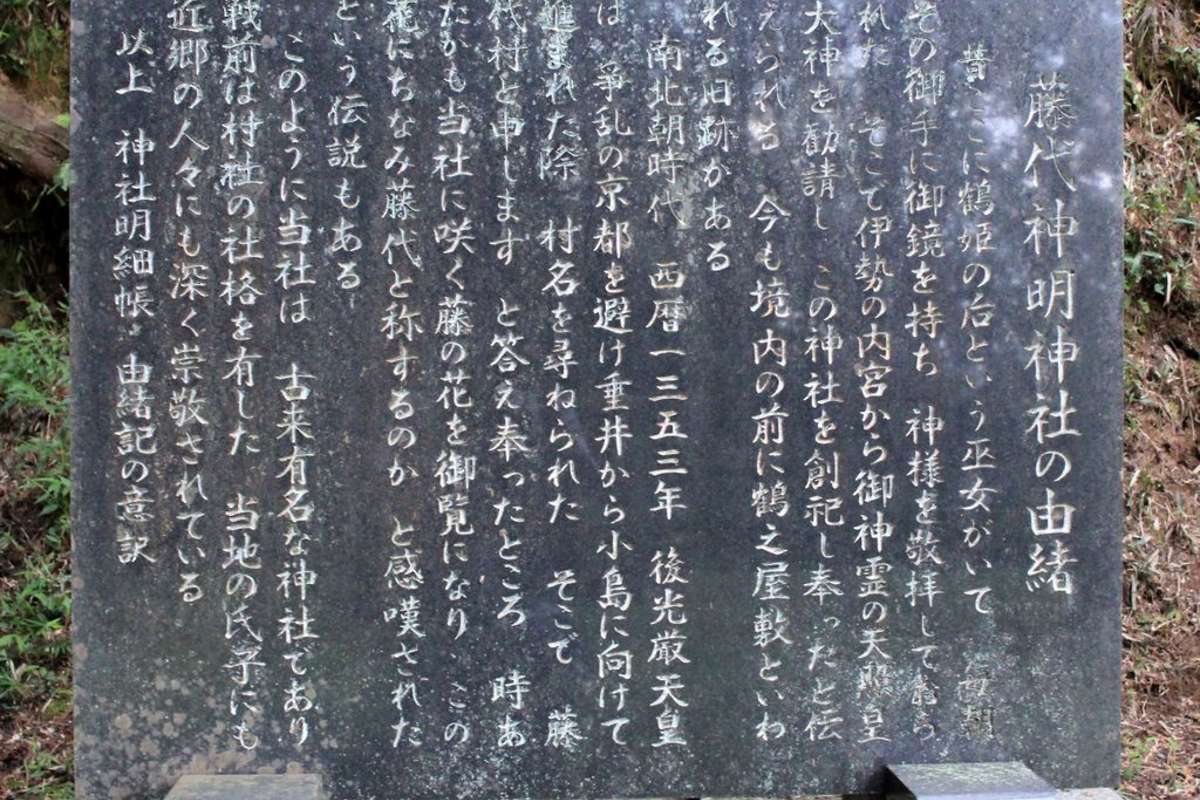 藤代神明神社の由緒
昔ここに鶴姫の后という巫女がいて 毎朝
その御手に御鏡を持ち 神様を敬拝して居ら
れた そこで伊勢の内宮から御神霊の天照皇
大神を勧請し この神社を創祀し奉ったと伝
えられる 今も境内の前に鶴之屋敷といわ
れる旧跡がある
南北朝時代 西暦一三五三年 後光厳天皇
は 争乱の京都を避け垂井から小島に向けて
進まれた際 村名を尋ねられた そこで 藤
代村と申します と答え奉ったところ 時あ
たかも当社に咲く藤の花を御覧になり この
花にちなみ藤代と称するのか と感嘆された
という伝説もある
このように当社は 古来有名な神社であり
戦前は村社の社格を有した 当地の氏子にも
近郷の人々にも深く崇敬されている
以上 神社明細帳・由緒記の意訳